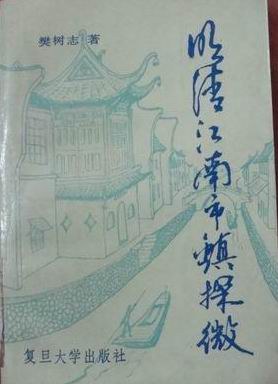 樊树志 著
明清江南市镇探微
复旦大学出版社